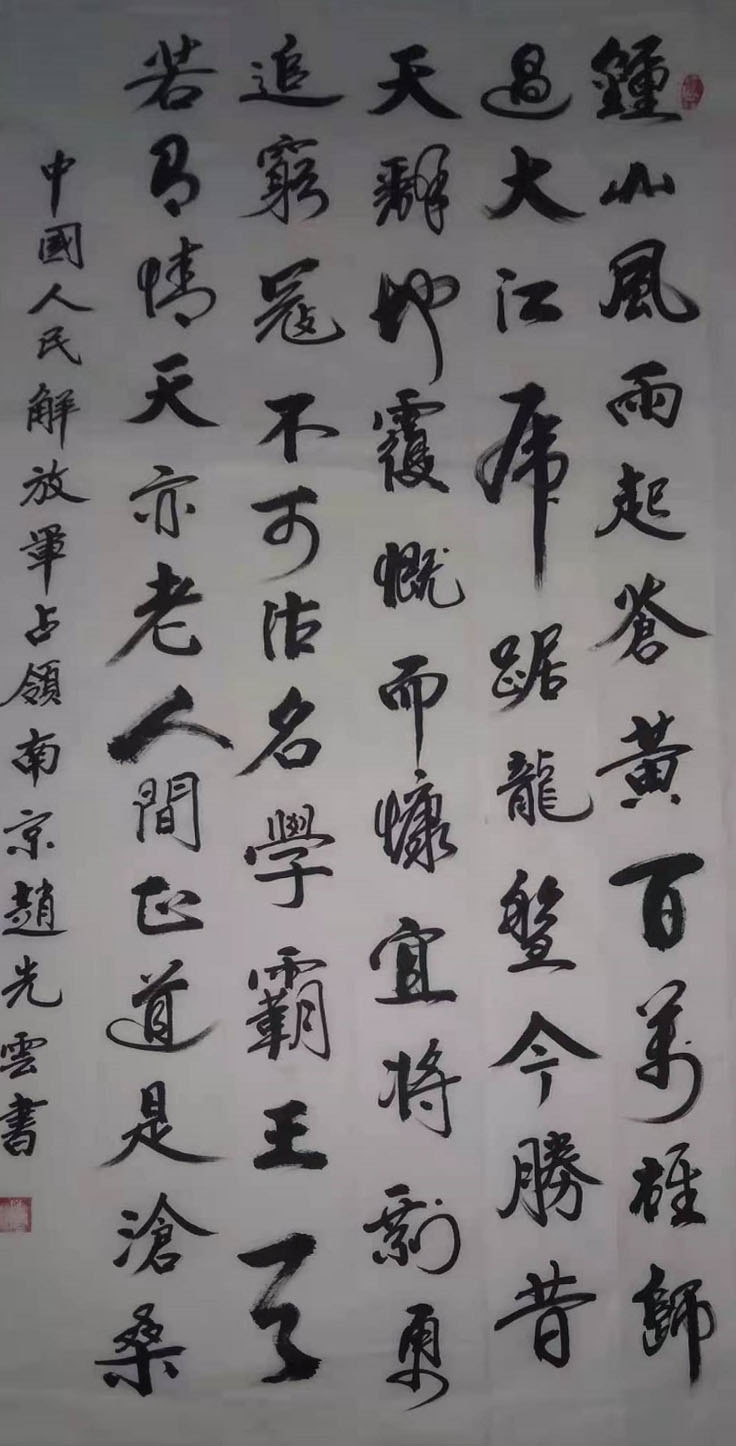 鍾山風雨起蒼黃百萬雄師
過大江虎踞龍盤今勝昔
天翻地覆慨而慷宜将剩勇
追窮寇不可沽名學霸王天
若有情天亦老人間正道是滄桑
中國人民解放軍占領南京趙先雲書